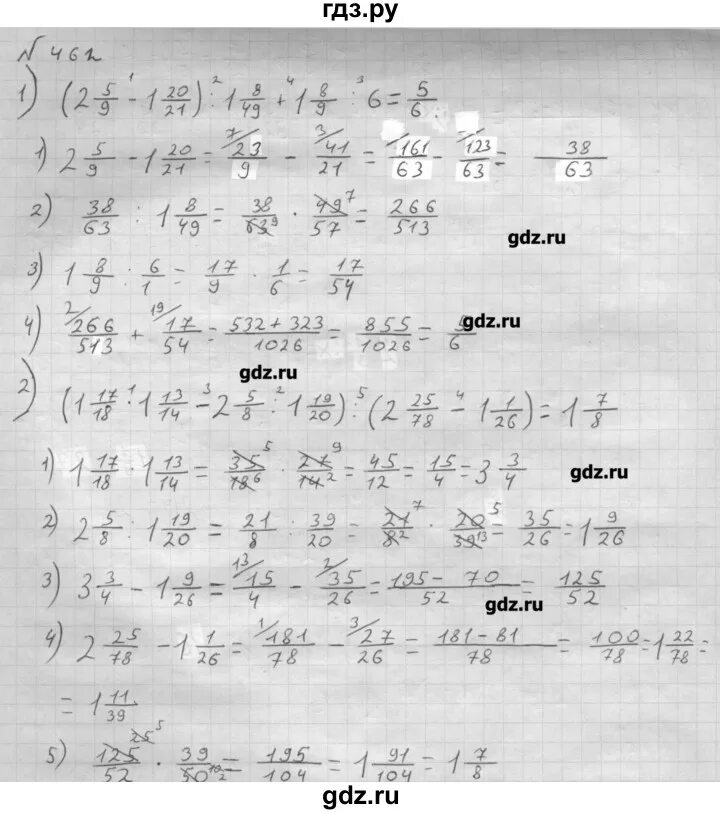 гдз.ру
№ 462
1) (2 5/9 - 1 20/21) : 1 8/49 + 1 8/9 : 6 = 5/6
1) 2 5/9 - 1 20/21 = 23/9 - 41/21 = 161/63 - 123/63 = 38/63
2) 38/63 : 1 8/49 = 38/63 · 49/57 = 266/513
gdz.ru
3) 1 8/9 : 6/1 = 17/9 · 1/6 = 17/54
4) 266/513 + 17/54 = 532 + 323/1026 = 855/1026 = 5/6
gdz.ru
gdz.ru
2) (1 17/18 : 1 13/14 - 2 5/8 : 1 19/20) : (2 25/78 - 1 1/26) = 1 7/8
1) 1 17/18 · 1 13/14 = 35/18 · 27/14 = 45/12 = 15/4 = 3 3/4
gdz.ru
2) 2 5/8 : 1 19/20 = 21/8 : 39/20 = 21/8 · 20/39 = 35/26 = 1 9/26
3) 3 3/4 - 1 9/26 = 15/4 - 35/26 = 195 - 70/52 = 125/52
gdz.ru
4) 2 25/78 - 1 1/26 = 181/78 - 27/26 = 181 - 81/78 = 100/78 = 1 22/78 =
= 1 11/39
5) 125/52 · 39/50 = 195/104 = 1 91/104 = 1 7/8
gdz.ru